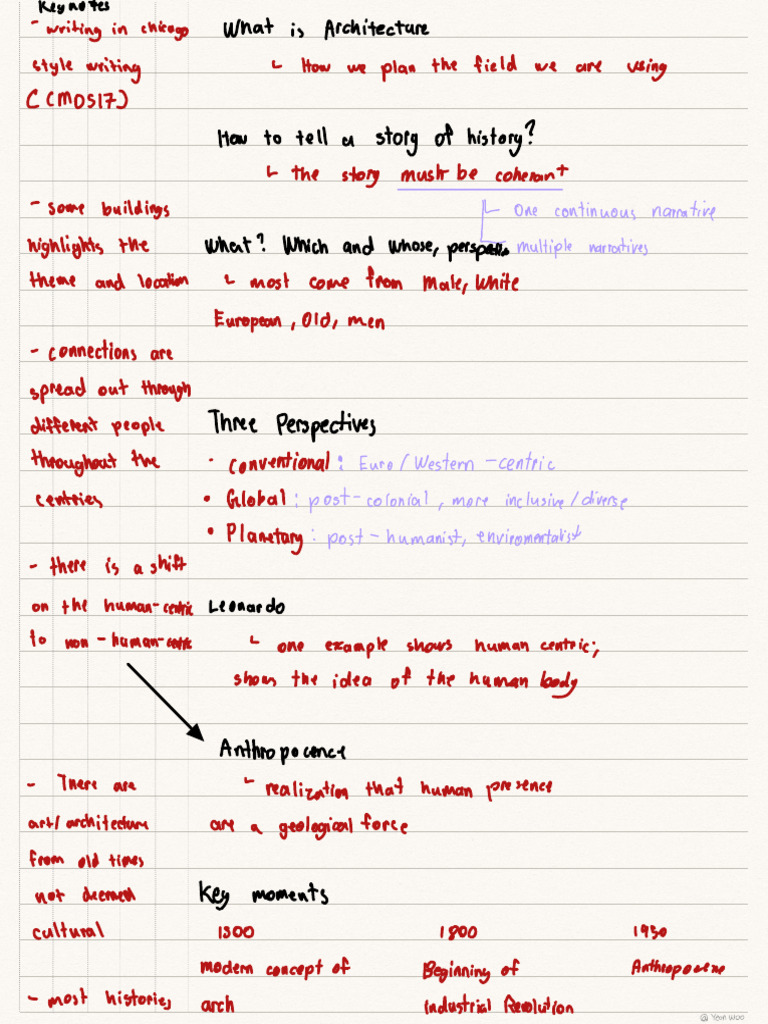 Key notes
- writing in chicago
style writing
(CMOS17)
- some buildings
highlights the
theme and location
- connections are
spread out through
different people
throughout the
centries
- there is a shift
on the human-centric
to non-human-centric
- There are
art/architecture
from old times
not deemed
cultural
- most histories
What is Architecture
How we plan the field we are using
How to tell a story of history?
the story must be coherant
One continuous narrative
multiple narratives
What? Which and whose,
most come from Male, White
European, Old, men
Three Perspectives
· Conventional: Euro/Western-centric
• Global: post-colonial, more inclusive/diverse
• Planetary: post-humanist, enviromentalist
Leonardo
one example shows human centric;
shows the idea of the human body
Anthropocence
realization that human presence
are a geological force
Key moments
1300 1800 1950
modern concept of Beginning of Anthropocene
arch Industrial Revolution
@ Yoon Woo